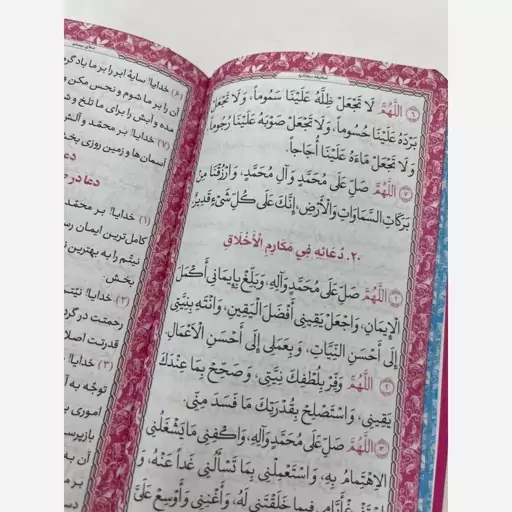 صحیفه سجادیه
(۶) اَللَّهُمَّ لَا تَجْعَلْ ظِلَّهُ عَلَيْنَا سَمُوماً، وَلَا تَجْعَلْ
بَرْدَهُ عَلَيْنَا حُسُوماً، وَلَا تَجْعَلْ صَوْبَهُ عَلَيْنَا رُجُوماً،
وَلَا تَجْعَلْ مَاءَهُ عَلَيْنَا أُجَاجاً.
(۷) اَللَّهُمَّ صَلِّ عَلَى مُحَمَّدٍ وَآلِ مُحَمَّدٍ، وَارْزُقْنَا مِنْ
بَرَكَاتِ السَّمَاوَاتِ وَالْأَرْضِ، إِنَّكَ عَلَى كُلِّ شَيْءٍ قَدِيرٌ.
۲۰. دُعَائِهِ فِي مَكَارِمِ الْأَخْلَاقِ
(۱) اَللَّهُمَّ صَلِّ عَلَى مُحَمَّدٍ وَآلِهِ، وَبَلِّغْ بِإِيمَانِي أَكْمَلَ
الْإِيمَانِ، وَاجْعَلْ يَقِينِي أَفْضَلَ الْيَقِينِ، وَانْتَهِ بِنِيَّتِي
إِلَى أَحْسَنِ النِّيَّاتِ، وَبِعَمَلِي إِلَى أَحْسَنِ الْأَعْمَالِ.
(۲) اَللَّهُمَّ وَفِّرْ بِلُطْفِكَ نِيَّتِي، وَصَحِّحْ بِمَا عِنْدَكَ
يَقِينِي، وَاسْتَصْلِحْ بِقُدْرَتِكَ مَا فَسَدَ مِنِّي.
(۳) اَللَّهُمَّ صَلِّ عَلَى مُحَمَّدٍ وَآلِهِ، وَاكْفِنِي مَا يَشْغَلُنِي
الْاِهْتِمَامُ بِهِ، وَاسْتَعْمِلْنِي بِمَا تَسْأَلُنِي غَداً عَنْهُ، وَ
اسْتَفْرِغْ أَيَّامِي فِيمَا خَلَقْتَنِي لَهُ، وَأَغْنِنِي وَأَوْسِعْ عَلَيَّ
(۶) خدایا! سایهٔ ابر را بر ما باد گر
آن را بر ما شوم و نحس مکن و
مده و آبش را برای ما تلخ و شو
(۷) خدایا! بر محمّد و آلش
آسمان‌ها و زمین روزی بخش
دعا
دعا در
(۱) خدایا! بر محمّد
کامل‌ترین ایمان رسا
نیّتم را به بهترین نی
بخش.
(۲) خدایا! نیّتم
رحمتت در گرو
قدرتت اصلاح
(۳) خدایا!
توجّه به آ
اموری با
بازپرس
آن به